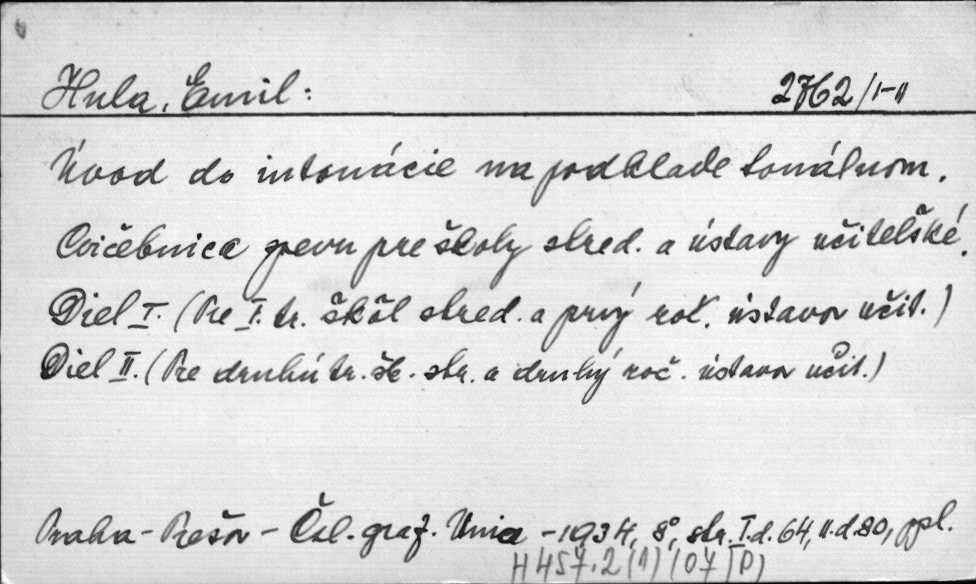 Hula, Emil: 2762/I-II
Úvod do intonácie na podklade tonálnom.
Cvičebnica spevu pre školy stred. a ústavy učiteľské.
Diel I. (Pre I. tr. škôl stred. a prvý roč. ústavov učit.)
Diel II. (Pre druhú tr. šk. str. a druhý roč. ústavov učit.)
Praha - Prešov - Čsl. graf. Unia - 1934, 8°, str. I.d. 64, II.d. 80, ppl.
H 457.2 (1) (07 P)